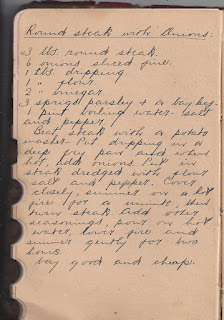 Round steak with Onions:
3 lbs. round steak.
6 onions sliced fine.
2 tbs. dripping.
1 " flour
2 " vinegar.
3 sprigs parsley + a bay leaf.
1 pint boiling water - salt
and pepper.
Beat steak with a potato
masher - Put dripping in a
deep fry pan and when
hot, add onions. Put in
steak dredged with flour
salt and pepper. Cover
closely, simmer on a hot
fire for a minute, then
turn steak add other
seasonings, pour on hot
water, lower fire and
simmer gently for two
hours.
Very good and cheap.